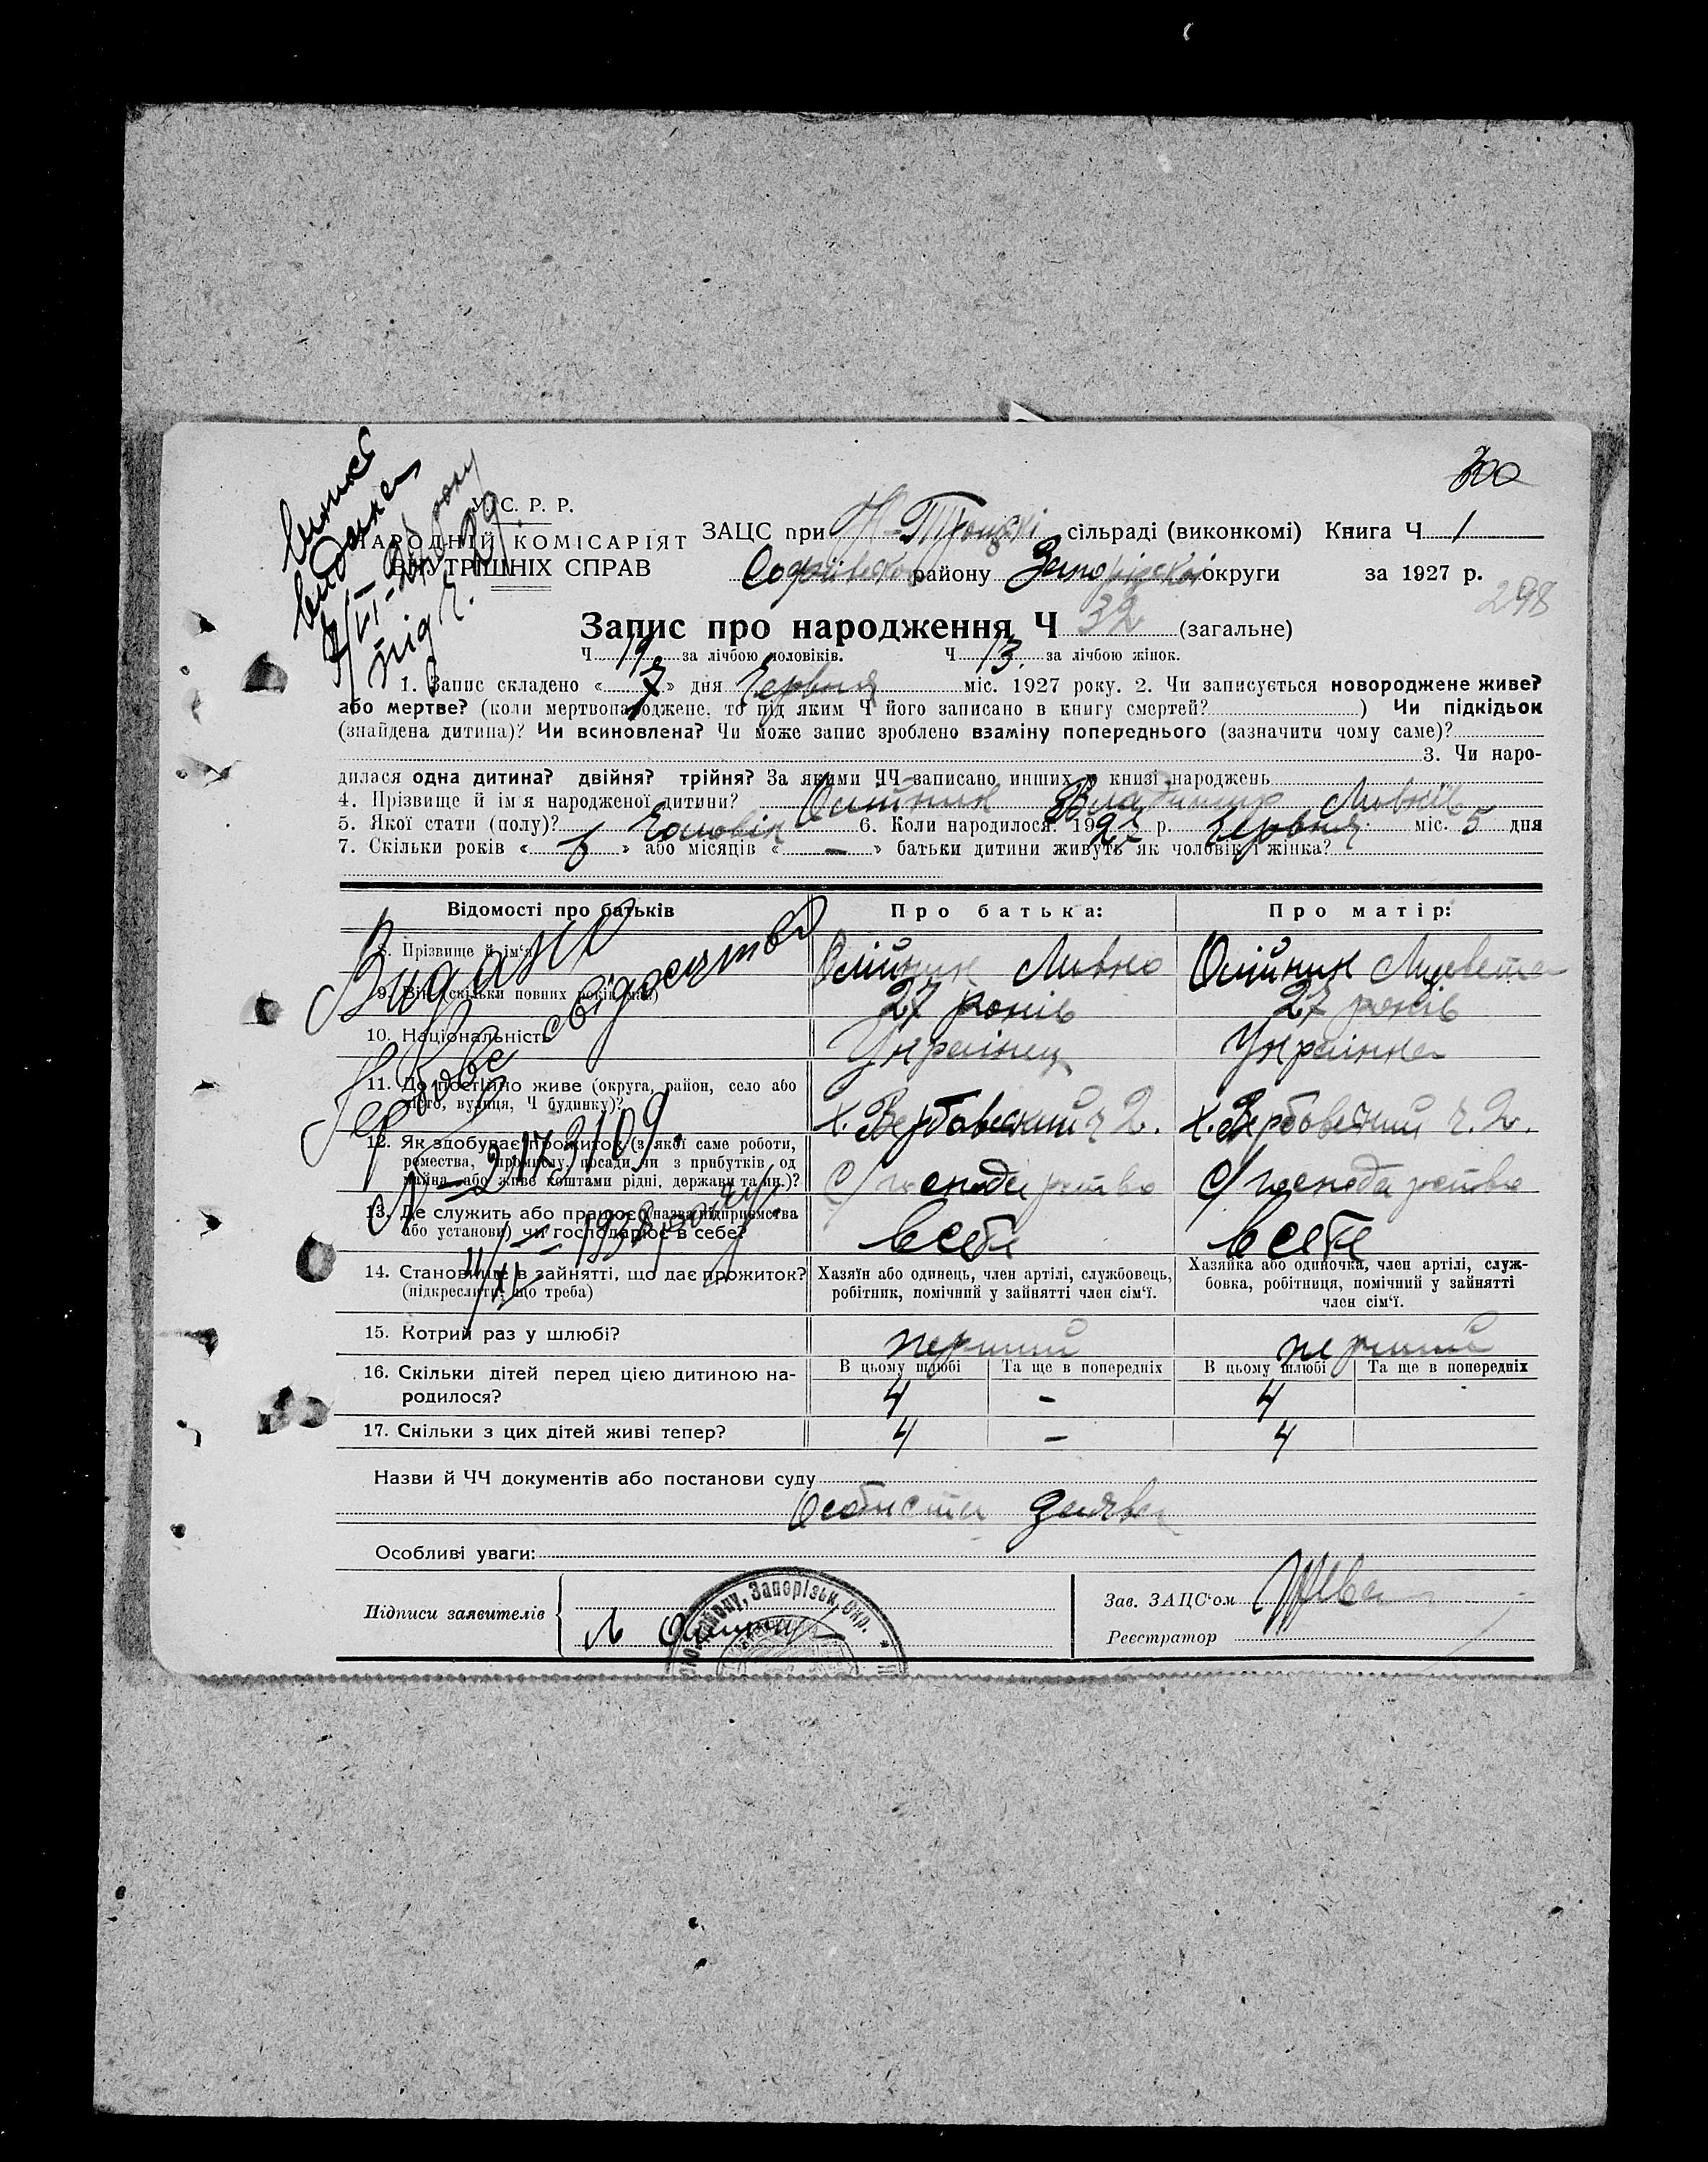 300
виписка
видана
У. С. Р. Р.
НАРОДНІЙ КОМІСАРІЯТ
ВНУТРІШНІХ СПРАВ
під ч. 29.
ЗАЦС при Н-Троїцкі сільраді (виконкомі) Книга Ч 1
Софіївсько району Запорізької округи за 1927 р.
298
Запис про народження Ч 32 (загальне)
Ч 19 за лічбою чоловіків. Ч 13. за лічбою жінок.
1. Запис складено « 7 » дня Червня міс. 1927 року. 2. Чи записується новороджене живе?
або мертве? (коли мертвонароджене, то під яким Ч його записано в книгу смертей? ) Чи підкідьок
(знайдена дитина)? Чи всиновлена? Чи може запис зроблено взаміну попереднього (зазначити чому саме)?
3. Чи наро-
дилася одна дитина? двійня? трійня? За якими ЧЧ записано инших в книзі народжень
4. Прізвище й ім'я народженої дитини? Олійник Владимир
5. Якої стати (полу)? Чоловік 6. Коли народилося? 1927 р. Червня міс. 5 дня
7. Скільки років « 6 » або місяців « — » батьки дитини живуть як чоловік і жінка?
Відомості про батьків Про батька: Про матір:
8. Прізвище й ім'я Олійник Олійник
9. Вік (скільки повних років має) 27 років 27 років
10. Національність Українец Українка
11. Де постійно живе (округа, район, село або
місто, вулиця, Ч будинку)? х. Вербовський ч 2. х. Вербовський ч. 2.
12. Як здобуває прожиток (з якої саме роботи,
ремества, промислу, посади чи з прибутків од
майна або живе коштами рідні, держави та ин.)? С/господарство С/господарство
13. Де служить або працює (назва підприємства
або установи) чи господарює в себе? в себе в себе
Видано
Нове свідоцтво
№ - 2173109.
11/XI - 1938 року.
14. Становище в зайнятті, що дає прожиток?
(підкреслити, що треба)
Хазяїн або одинець, член артілі, службовець,
робітник, помічний у зайнятті член сім'ї.
Хазяйка або одиночка, член артілі, служ-
бовка, робітниця, помічний у зайнятті
член сім'ї.
15. Котрий раз у шлюбі? перший перший
16. Скільки дітей перед цією дитиною на-
родилося?
В цьому шлюбі Та ще в попередніх В цьому шлюбі Та ще в попередніх
4 – 4
17. Скільки з цих дітей живі тепер? 4 – 4
Назви й ЧЧ документів або постанови суду
Особиста заява
Особливі уваги:
Підписи заявителів
району, Запорізьк. Окр.
Зав. ЗАЦС'ом
Реєстратор